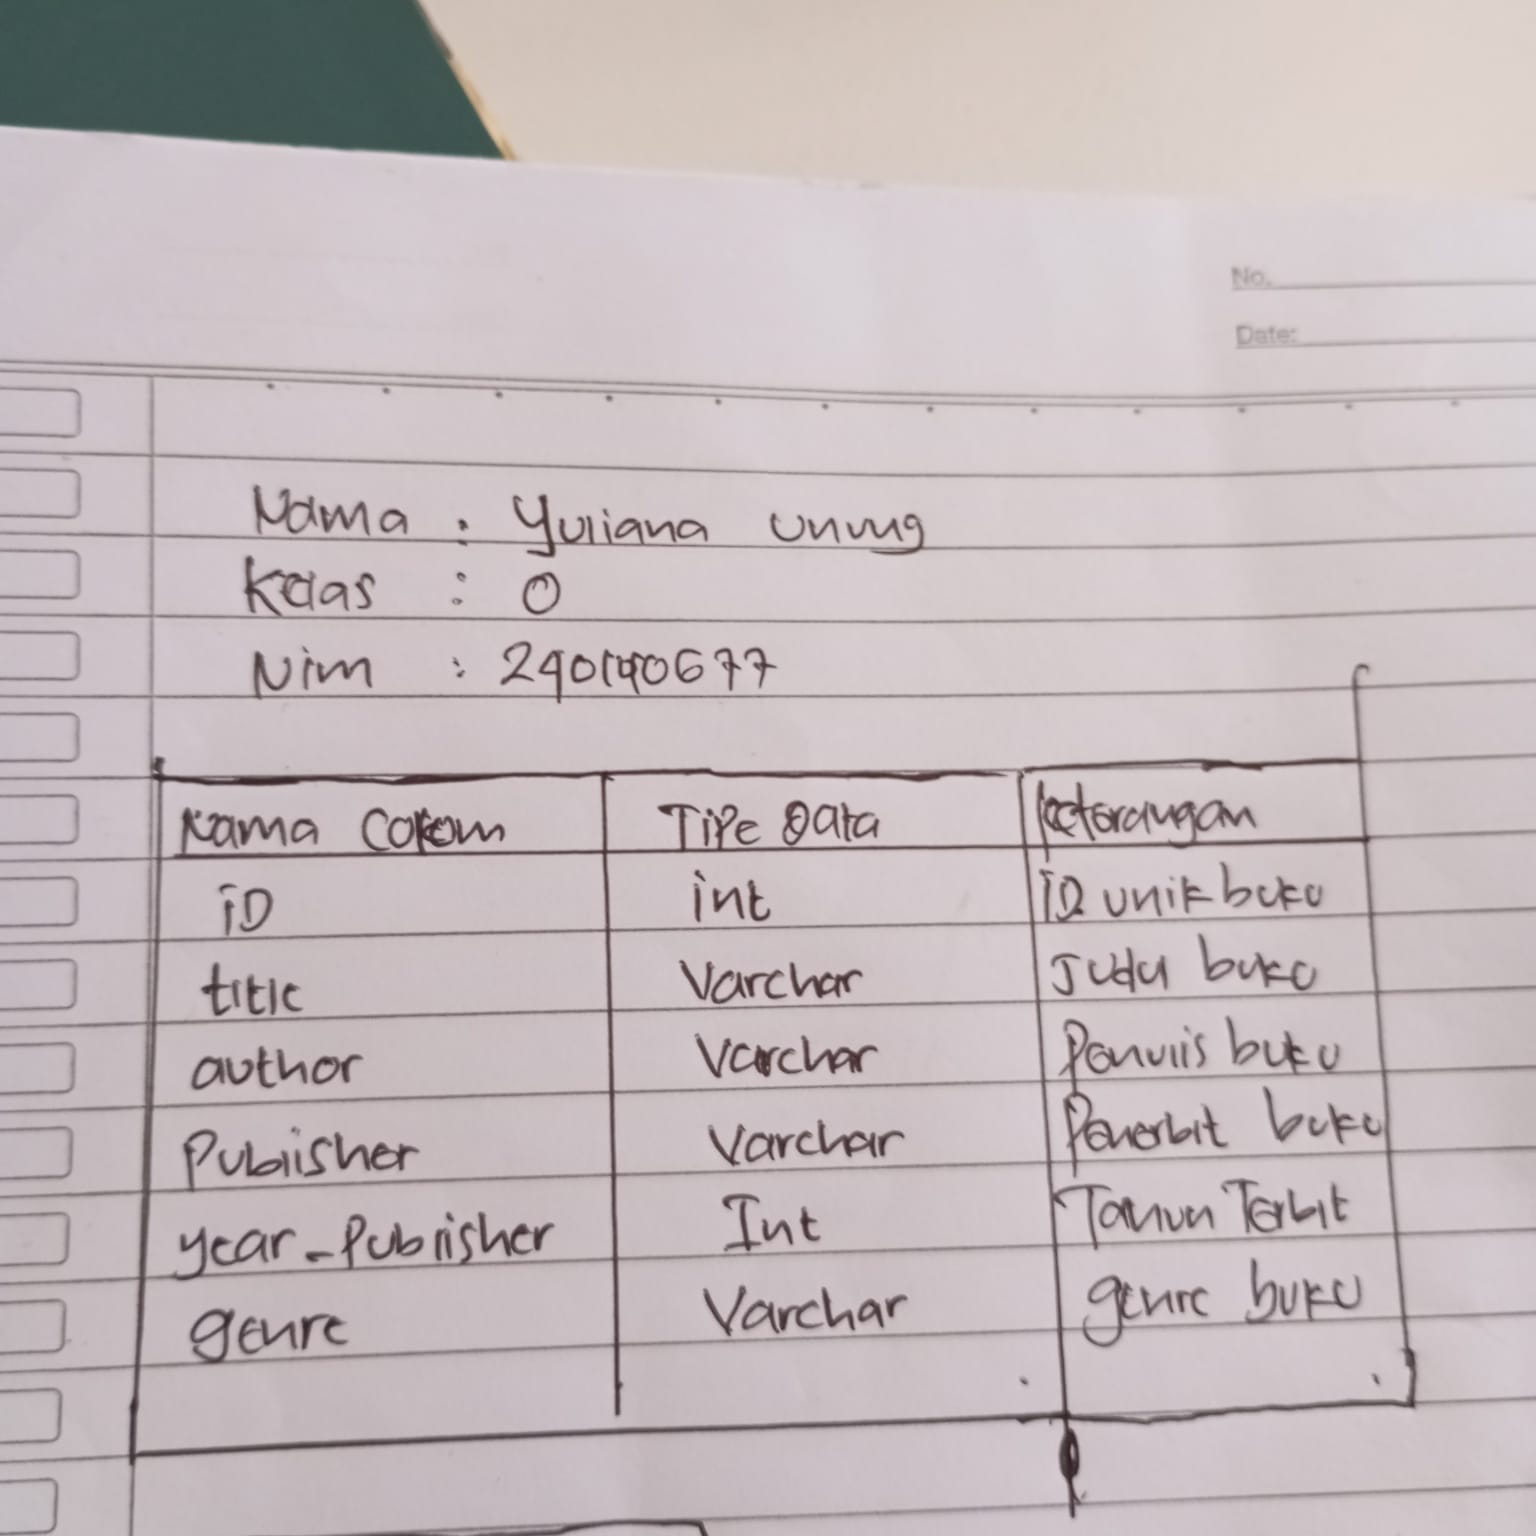 No.
Date:
Nama : Yuliana
Kelas : O
Nim :
Nama Colom Tipe Data Keterangan
iD int iD unik buku
title Varchar Judul buku
author Varchar Penulis buku
Publisher Varchar Penerbit buku
year_Publisher Int Tahun Terbit
genre Varchar genre buku